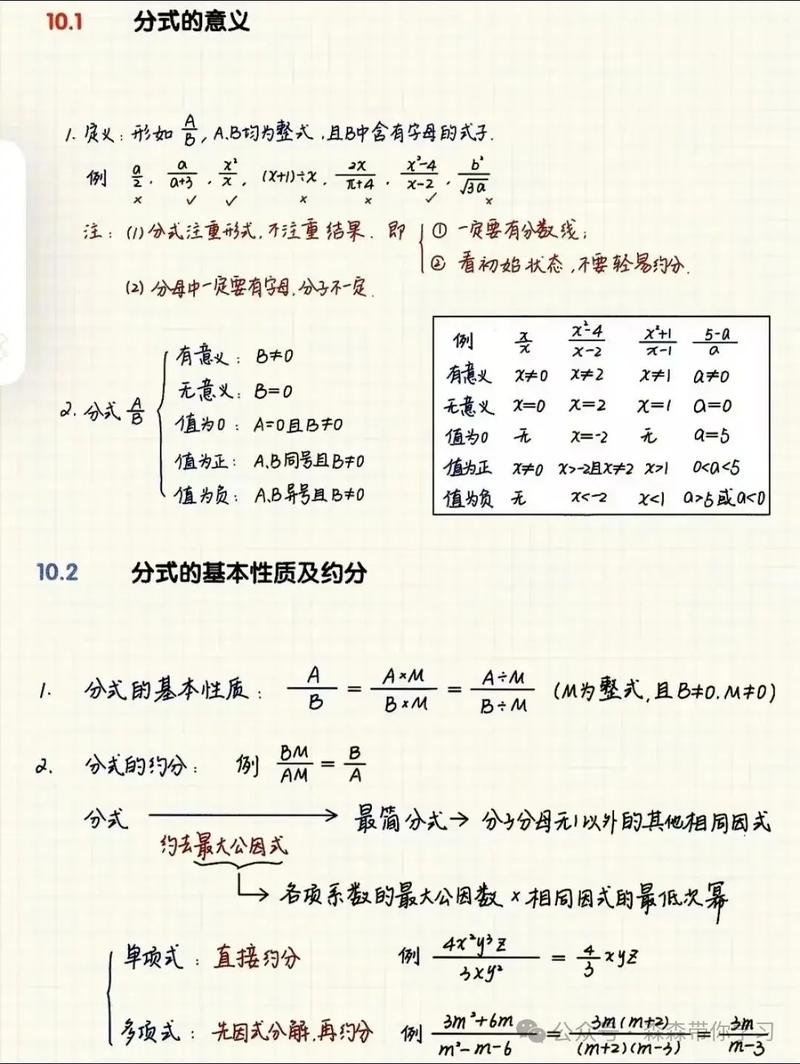 10.1 分式的意义
1. 定义：形如 A/B，A、B均为整式，且B中含有字母的式子.
例 a/2 , a/(a+3) , x²/x , (x+1)÷x , 2x/(π+4) , (x²-4)/(x-2) , b²/√3a
× ✓ ✓ × × ✓ ×
注：(1) 分式注重形式，不注重结果. 即 { ① 一定要有分数线；
② 看初始状态，不要轻易约分.
(2) 分母中一定要有字母，分子不一定.
2. 分式 A/B
有意义：B≠0
无意义：B=0
值为0：A=0且B≠0
值为正：A、B同号且B≠0
值为负：A、B异号且B≠0
例 x/x (x²-4)/(x-2) (x²+1)/(x-1) (5-a)/a
有意义 x≠0 x≠2 x≠1 a≠0
无意义 x=0 x=2 x=1 a=0
值为0 无 x=-2 无 a=5
值为正 x≠0 x>-2且x≠2 x>1 0<a<5
值为负 无 x<-2 x<1 a>5或a<0
10.2 分式的基本性质及约分
1. 分式的基本性质： A/B = (A×M)/(B×M) = (A÷M)/(B÷M) (M为整式，且B≠0. M≠0)
2. 分式的约分： 例 BM/AM = B/A
分式 → 最简分式→ 分子分母无1以外的其他相同因式
约去最大公因式
↳ 各项系数的最大公因数 × 相同因式的最低次幂
单项式：直接约分 例 4x²y³z/3xy² = 4/3 xyz
多项式：先因式分解，再约分 例 (3m²+6m)/(m²-m-6) = 3m(m+2)/(m+2)(m-3) = 3m/(m-3)
公众号·森森带你学习